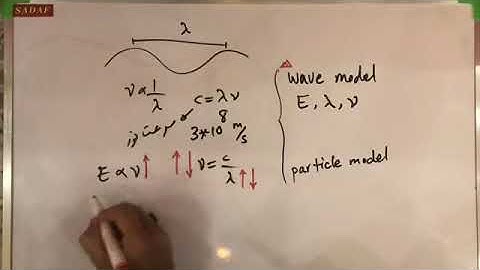 SADAF
λ
ν ∝ 1/λ
c = λ ν
سرعت نور
3*10^8 m/s
E ∝ ν ↑
↑ ↓ ν = c/λ ↑ ↓
wave model
E, λ, ν
particle model